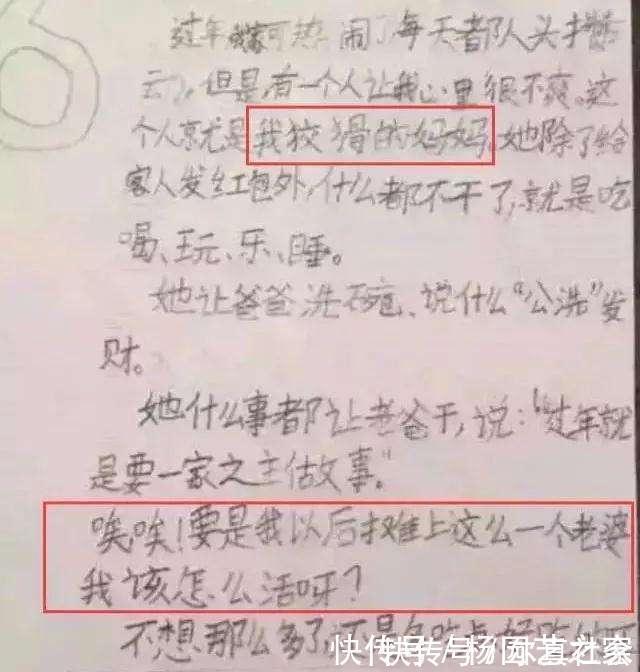 过年我家可热闹了每天都人头攒
云),但是,有一个人让我心里很不爽。这
个人就是我狡猾的妈妈,她除了给
客人发红包外,什么都不干了,就是吃
喝、玩、乐、睡。
她让爸爸洗碗、说什么“公洗”发
财。
她什么事都让老爸干,说:“过年就
是要一家之主做故事。”
唉唉!要是我以后摊上这么一个老婆
我该怎么活呀?
不想那么多了,还是